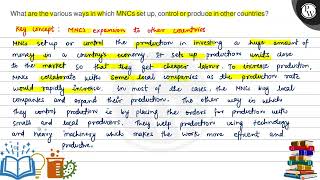 What are the various ways in which MNCs set up, control or produce in other countries?
Key concept : MNCs expansion to other countries
MNC set up or control the production in investing a huge amount of
money in a country's economy. It sets up production units close
to the market so that they get cheaper labor. To increase production,
MNCs collaborate with some local companies as the production rate
would rapidly increase. In most of the cases, the MNCs buy local
companies and expand their production. The other way in which
they control production is by placing the orders for production with
small and local producers. They help production using technology
and heavy machinery which makes the work more efficient and
productive.